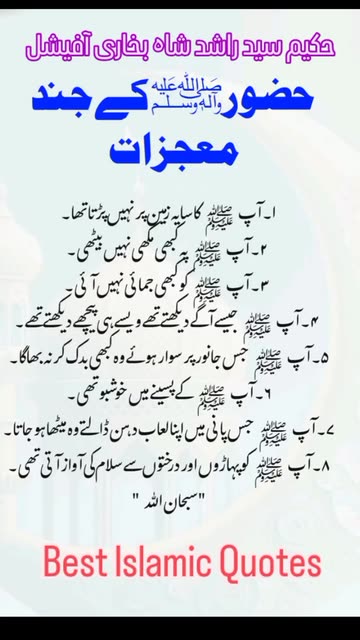 حکیم سید راشد شاہ بخاری آفیشل
حضور ﷺ کے چند
معجزات
۱۔آپ ﷺ کا سایہ زمین پر نہیں پڑتا تھا۔
۲۔آپ ﷺ پہ کبھی مکھی نہیں بیٹھی۔
۳۔آپ ﷺ کو کبھی جمائی نہیں آئی۔
۴۔آپ ﷺ جیسے آگے دیکھتے تھے ویسے ہی پیچھے دیکھتے تھے۔
۵۔آپ ﷺ جس جانور پر سوار ہوئے وہ کبھی بدک کر نہ بھاگا۔
۶۔آپ ﷺ کے پسینے میں خوشبو تھی۔
۷۔آپ ﷺ جس پانی میں اپنا لعاب دہن ڈالتے وہ میٹھا ہو جاتا۔
۸۔آپ ﷺ کو پہاڑوں اور درختوں سے سلام کی آواز آتی تھی۔
"سبحان اللہ "
Best Islamic Quotes